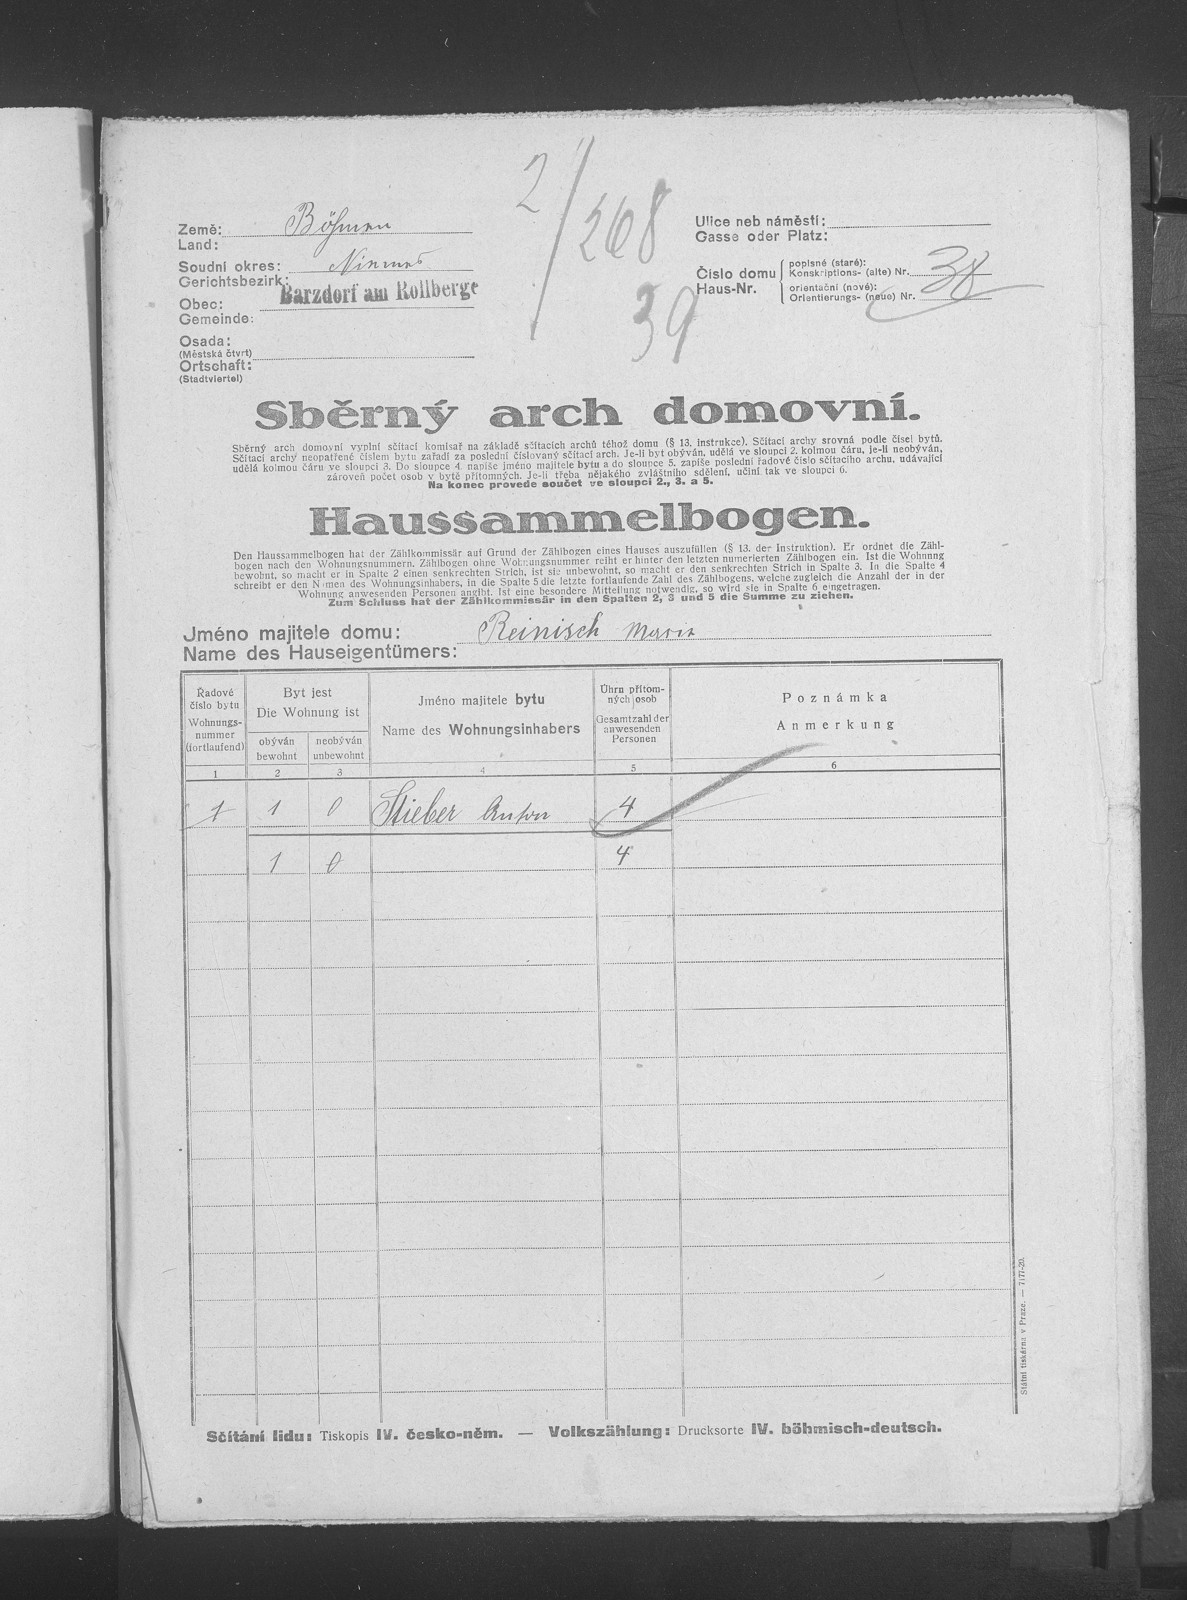 2/268
39
Země: Böhmen
Land:
Soudní okres: Niemes
Gerichtsbezirk:
Barzdorf am Rollberge
Obec:
Gemeinde:
Osada:
(Městská čtvrť)
Ortschaft:
(Stadtviertel)
Ulice neb náměstí:
Gasse oder Platz:
Číslo domu
Haus-Nr.
popisné (staré):
Konskriptions- (alte) Nr. 38
orientační (nové):
Orientierungs- (neue) Nr.
Sběrný arch domovní.
Sběrný arch domovní vyplní sčítací komisař na základě sčítacích archů téhož domu (§ 13. instrukce). Sčítací archy srovná podle čísel bytů.
Sčítací archy neopatřené číslem bytu zařadí za poslední číslovaný sčítací arch. Je-li byt obýván, udělá ve sloupci 2. kolmou čáru, je-li neobýván,
udělá kolmou čáru ve sloupci 3. Do sloupce 4. napíše jméno majitele bytu a do sloupce 5. zapíše poslední řadové číslo sčítacího archu, udávající
zároveň počet osob v bytě přítomných. Je-li třeba nějakého zvláštního sdělení, učiní tak ve sloupci 6.
Na konec provede součet ve sloupci 2., 3. a 5.
Haussammelbogen.
Den Haussammelbogen hat der Zählkommissär auf Grund der Zählbogen eines Hauses auszufüllen (§ 13. der Instruktion). Er ordnet die Zähl-
bogen nach den Wohnungsnummern. Zählbogen ohne Wohnungsnummer reiht er hinter den letzten numerierten Zählbogen ein. Ist die Wohnung
bewohnt, so macht er in Spalte 2 einen senkrechten Strich, ist sie unbewohnt, so macht er den senkrechten Strich in Spalte 3. In die Spalte 4
schreibt er den Namen des Wohnungsinhabers, in die Spalte 5 die letzte fortlaufende Zahl des Zählbogens, welche zugleich die Anzahl der in der
Wohnung anwesenden Personen angibt. Ist eine besondere Mitteilung notwendig, so wird sie in Spalte 6 eingetragen.
Zum Schluss hat der Zählkommissär in den Spalten 2, 3 und 5 die Summe zu ziehen.
Jméno majitele domu: Reinisch Maria
Name des Hauseigentümers:
Řadové
číslo bytu
Wohnungs-
nummer
(fortlaufend)
Byt jest
Die Wohnung ist
obýván
bewohnt
neobýván
unbewohnt
Jméno majitele bytu
Name des Wohnungsinhabers
Úhrn přítom-
ných osob
Gesamtzahl der
anwesenden
Personen
Poznámka
Anmerkung
1 2 3 4 5 6
1 1 0 Stieber Anton 4
1 0 4
Státní tiskárna v Praze. — 7177-20.
Sčítání lidu: Tiskopis IV. česko-něm. — Volkszählung: Drucksorte IV. böhmisch-deutsch.